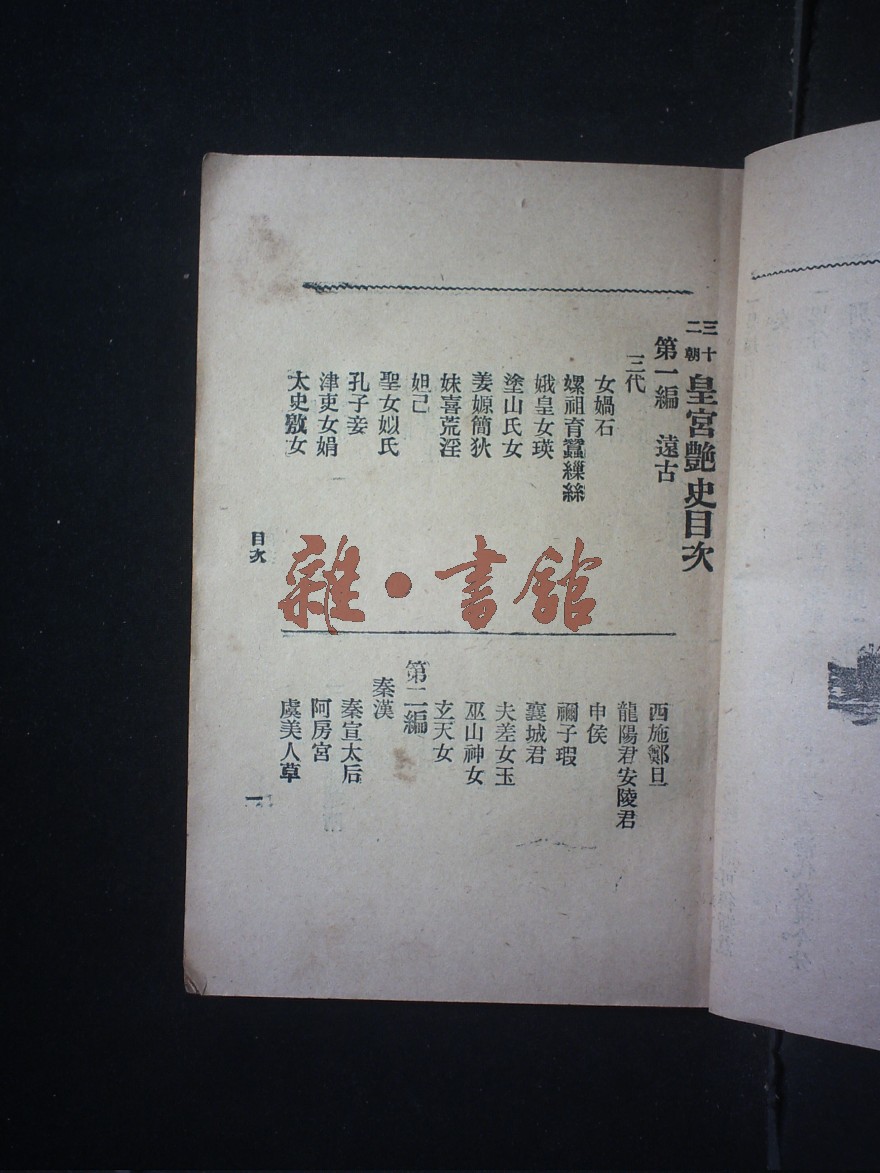 三十二朝皇宮艷史目次
第一編　遠古
三代
女媧石
嫘祖育蠶繅絲
娥皇女瑛
塗山氏女
姜嫄簡狄
妹喜荒淫
妲己
聖女姒氏
孔子妾
津吏女娟
太史敫女
西施鄭旦
龍陽君安陵君
申侯
禰子瑕
襄城君
夫差女玉
巫山神女
玄天女
第二編
秦漢
秦宣太后
阿房宮
虞美人草
目次
一
雜·書館